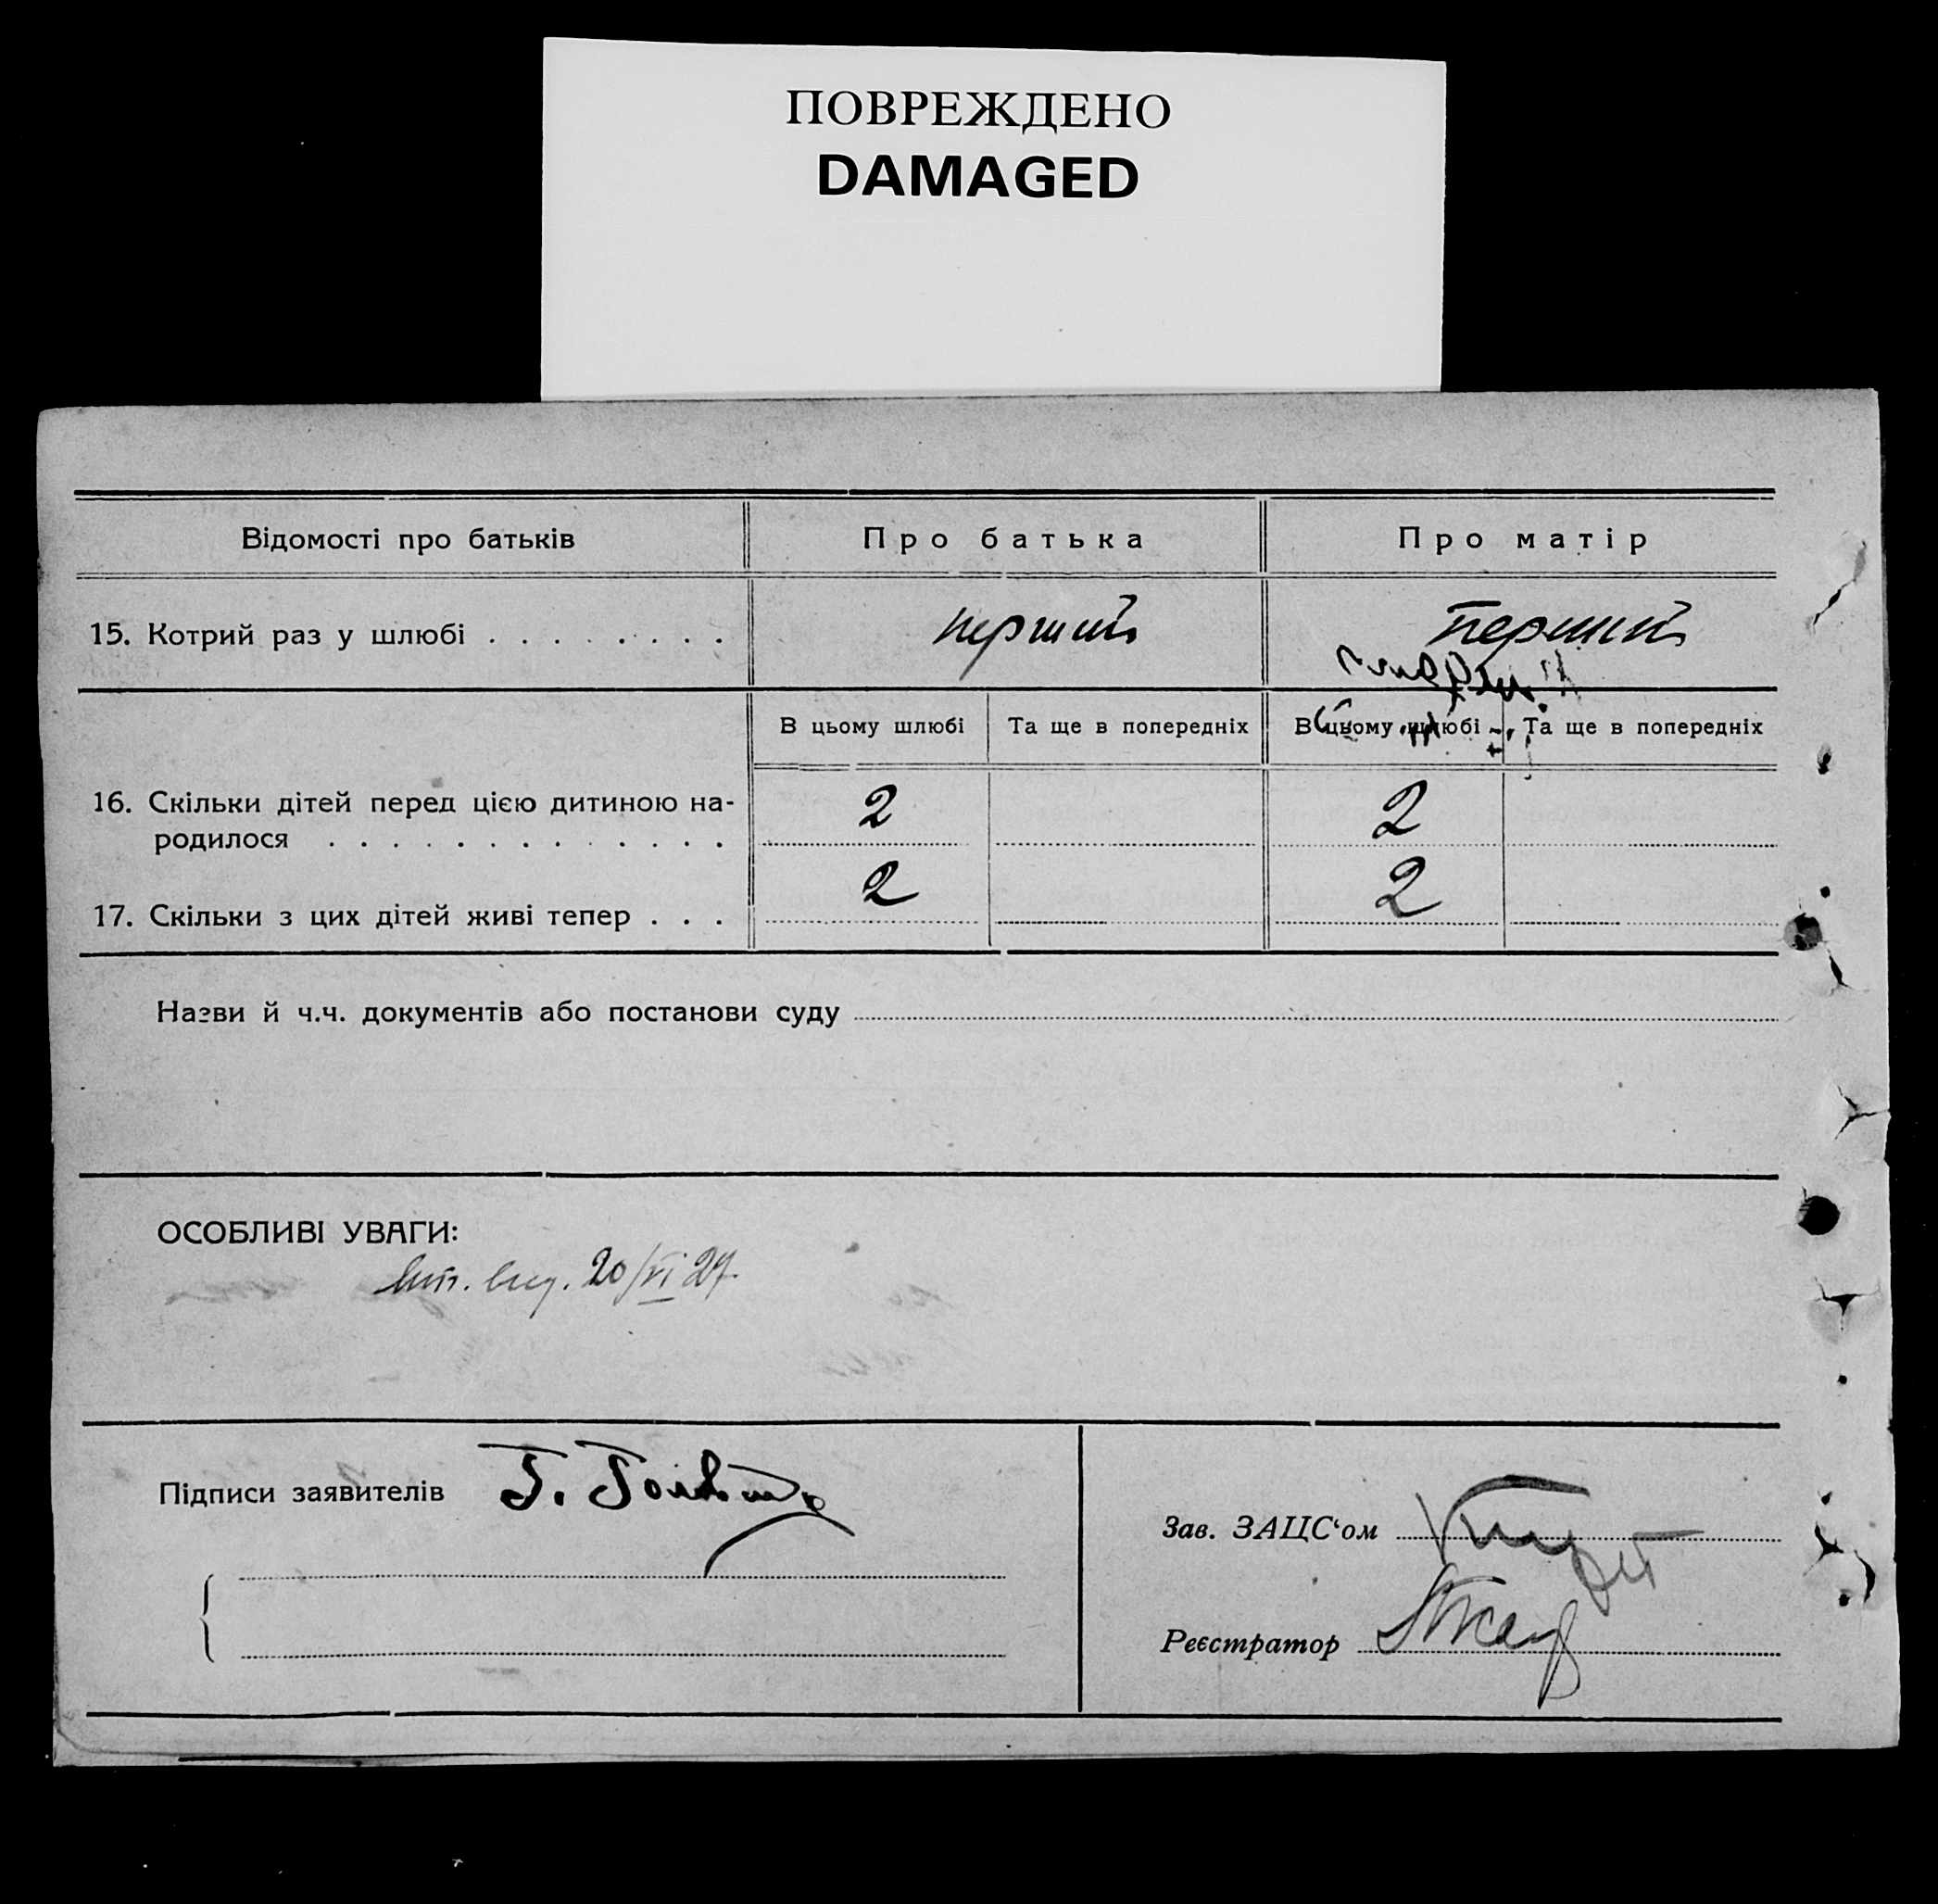 ПОВРЕЖДЕНО
DAMAGED
Відомості про батьків
Про батька
Про матір
15. Котрий раз у шлюбі . . . . . . . .
перший
Перший
В цьому шлюбі
Та ще в попередніх
В цьому шлюбі
Та ще в попередніх
16. Скільки дітей перед цією дитиною на-
родилося . . . . . . . . . . . . .
2
2
17. Скільки з цих дітей живі тепер . . .
2
2
Назви й ч.ч. документів або постанови суду
ОСОБЛИВІ УВАГИ:
20/VI 27.
Підписи заявителів
Зав. ЗАЦС‘ом
Реєстратор